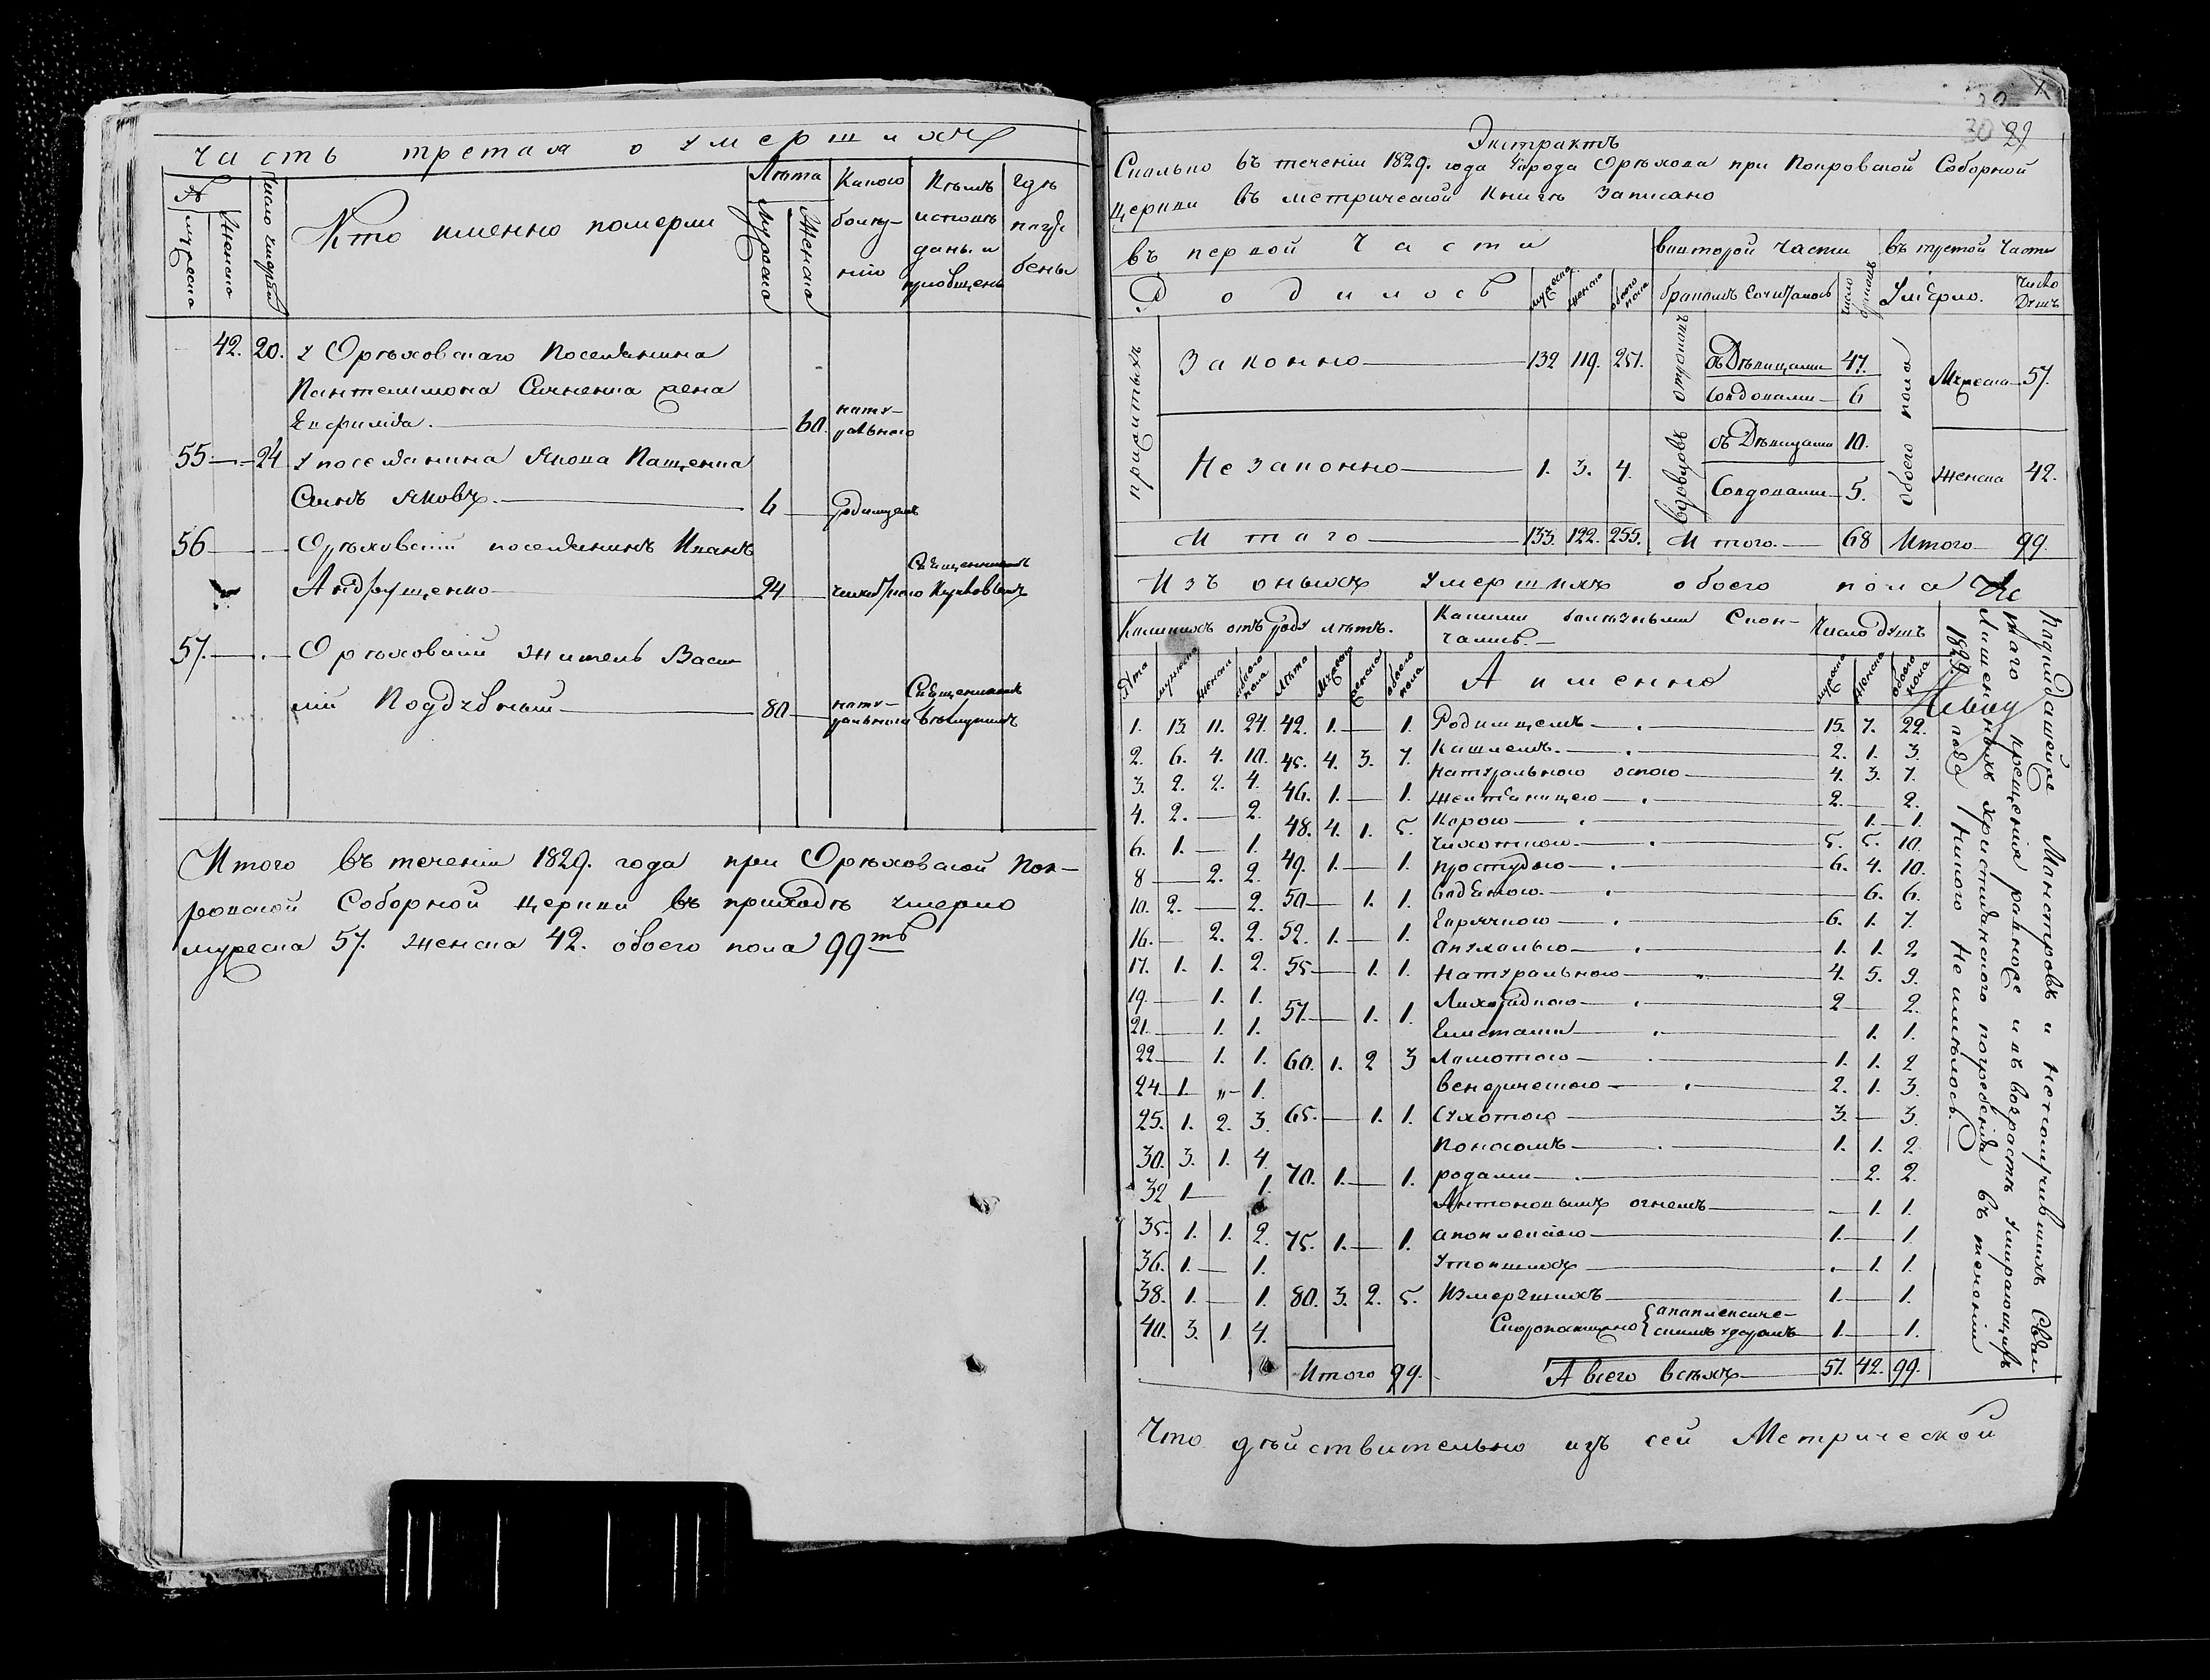 Часть третая о умершихъ
№
мужеска
женска
число умертвія
Кто именно померли
Лѣта
Мужеска
Женска
Какого болѣзнію
Кѣмъ исповѣданы и пріобщены
Гдѣ погребены
42. 20. у Орѣховскаго поселянина
Пантелимона жена
Евфимія. 60. натурального
55 24 у поселянина Якова Пащенка
Сынъ Яковъ. 6 родимцемъ
56 Орѣховскій поселянинъ Иванъ Священникомъ
Андрущенко 24
57. Орѣховскій житель Васи- Священникомъ
лій Поддубный 80 натурального
Итого въ теченіи 1829. года при Орѣховской Пок-
ровской Соборной церкви въ приходѣ умерло
мужеска 57. женска 42. обоего пола 99ть
29
30
Экстрактъ
Сколько въ теченіи 1829. года города Орѣхова при Покровской Соборной
церкви въ метрической книгѣ записано
въ первой части во второй части въ третой части
Родилось мужеска женска обоего пола бракомъ сочеталось число Умерло. Число Душъ
прижитыхъ
Законно 132 119. 251.
отроковъ
съ Дѣвицами 47.
со вдовами 6
обоего пола
Мужеска 57.
Незаконно 1. 3. 4.
вдовцовъ
съ Дѣвицами 10.
Со вдовами 5.
женска 42.
Итого 133. 122. 255. Итого. 68 Итого 99.
Изъ оныхъ умершихъ обоего пола
Коликихъ отъ роду лѣтъ. Какими болѣзньми Скон-
чались. Число душъ
Лѣта мужеска женска обоего пола Лѣта Мужеска женска обоего пола А именно мужеска женска обоего пола
1. 13. 11. 24. 42. 1. — 1. Родимцемъ 15. 7. 22.
2. 6. 4. 10. 45. 4. 3. 7. Кашлемъ. 2. 1. 3.
3. 2. 2. 4. 46. 1. — 1. Натуральною оспою 4. 3. 7.
4. 2. — 2. 48. 4. 1. 5. Желтяницею 2. — 2.
6. 1. — 1. 49. 1. — 1. Корою 1. 1.
8 — 2. 2. 50 — 1. 1. Чихоткою 5. 5. 10.
10. 2. — 2. 52. 1. — 1. простудою 6. 4. 10.
16. — 2. 2. 55 — 1. 1. водяною. 6. 6.
17. 1. 1. 2. 57. — 1. 1. Горячкою 6. 1. 7.
19. — 1. 1. 60. 1. 2 3 опухолью 1. 1. 2
21. — 1. 1. 65. — 1. 1. Натурального 4. 5. 9.
22 — 1. 1. 70. 1. — 1. Лихорадкою 2 — 2.
24 1. „ 1. 75. 1. — 1. Глистами 1. 1.
25. 1. 2. 3. 80. 3. 2. 5. Ломотою 1. 1. 2
30. 3. 1. 4. венерическою 2. 1. 3.
32 1 — 1. Сухотою 3. — 3.
35. 1. 1. 2. Поносомъ 1. 1. 2
36. 1. — 1. родами 2. 2.
38. 1. — 1. Антоновымъ огнемъ 1. 1.
40. 3. 1. 4. апоплексіею 1. 1.
Утопшихъ 1. 1.
Измерзшихъ 1. 1.
Скоропостижно апоплексиче-
скимъ ударомъ 1. 1.
Итого 99. А всего всѣхъ 57. 42. 99.
Между
крещенія ранное и въ возрастѣ умирающихъ
Лишенныхъ христіанскаго погребенія въ теченіи
1829. года никого не имѣлось.
Что дѣйствительно изъ сей Метрической